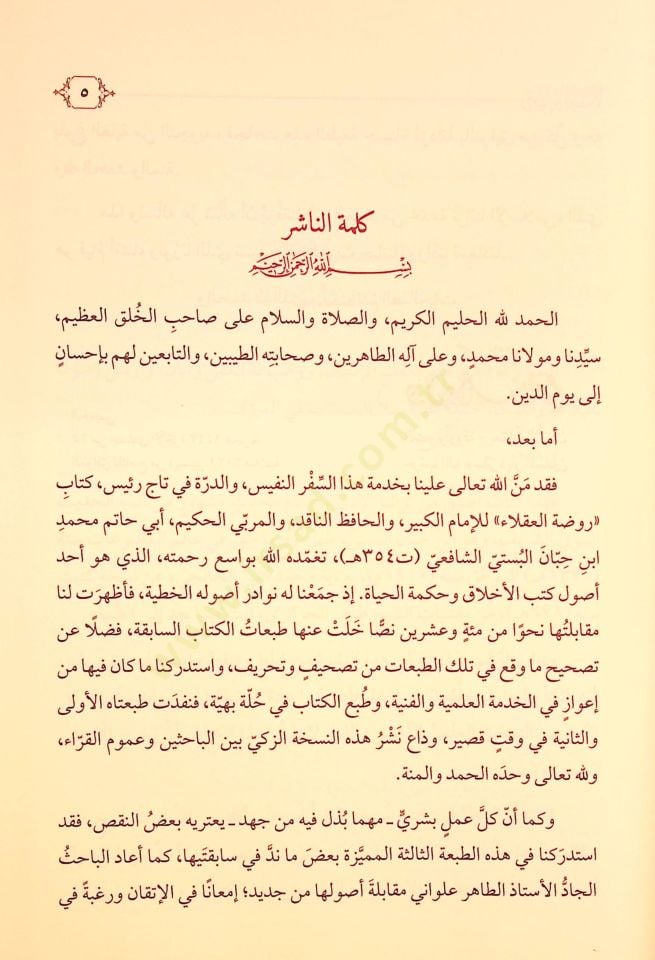 ٥
كلمة الناشر
بِسْمِ اللهِ الرَّحْمَنِ الرَّحِيمِ
الحمد لله الحليم الكريم، والصلاة والسلام على صاحبِ الخُلق العظيم،
سيِّدِنا ومولانا محمدٍ، وعلى آلِه الطاهرين، وصحابتِه الطيبين، والتابعين لهم بإحسانٍ
إلى يوم الدين.
أما بعد،
فقد مَنَّ الله تعالى علينا بخدمة هذا السِّفْر النفيس، والدرّة في تاج رئيس، كتابِ
«روضة العقلاء» للإمام الكبير، والحافظ الناقد، والمربّي الحكيم، أبي حاتم محمدِ
ابنِ حِبّانَ البُستيِّ الشافعيِّ (ت٣٥٤هـ)، تغمّده الله بواسع رحمته، الذي هو أحد
أصول كتب الأخلاق وحكمة الحياة. إذ جمَعْنا له نوادر أصوله الخطية، فأظهرَت لنا
مقابلتُها نحوًا من مئةٍ وعشرين نصًّا خَلَتْ عنها طبعاتُ الكتاب السابقة، فضلًا عن
تصحيح ما وقع في تلك الطبعات من تصحيفٍ وتحريف، واستدركنا ما كان فيها من
إعوازٍ في الخدمة العلمية والفنية، وطُبع الكتاب في حُلّة بهيّة، فنفدَت طبعتاه الأولى
والثانية في وقتٍ قصير، وذاع نَشْرُ هذه النسخة الزكيّ بين الباحثين وعموم القرّاء،
ولله تعالى وحدَه الحمد والمنة.
وكما أنّ كلَّ عملٍ بشريٍّ ـ مهما بُذل فيه من جهد ـ يعتريه بعضُ النقص، فقد
استدرَكنا في هذه الطبعة الثالثة المميَّزة بعضَ ما ندَّ في سابقتَيها، كما أعاد الباحثُ
الجادُّ الأستاذ الطاهر علواني مقابلةَ أصولها من جديد؛ إمعانًا في الإتقان ورغبةً في